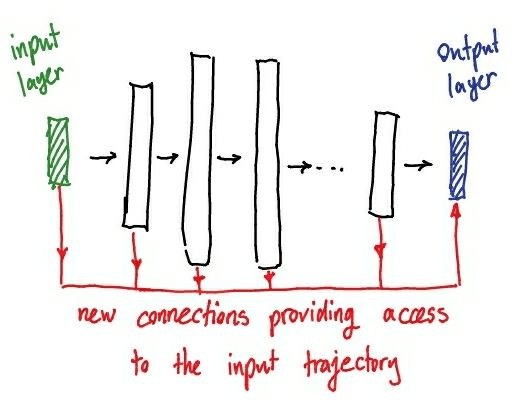 input
layer
output
layer
...
new connections providing access
to the input trajectory